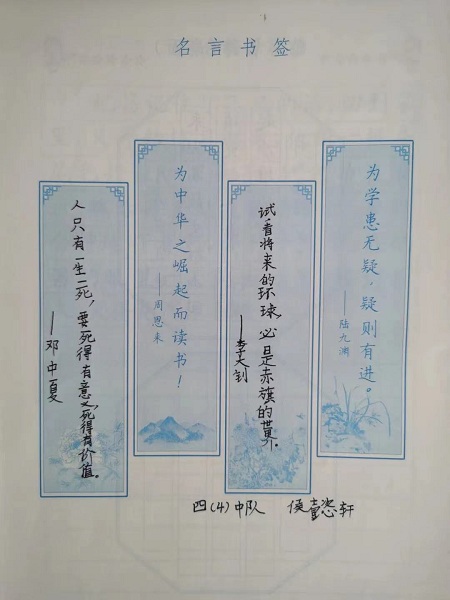 名言书签
为学患无疑，疑则有进。
——陆九渊
试看将来的环球，必是赤旗的世界。
——李大钊
为中华之崛起而读书！
——周恩来
人只有一生一死，要死得有意义，死得有价值。
——邓中夏
四(4)中队 侯懿轩